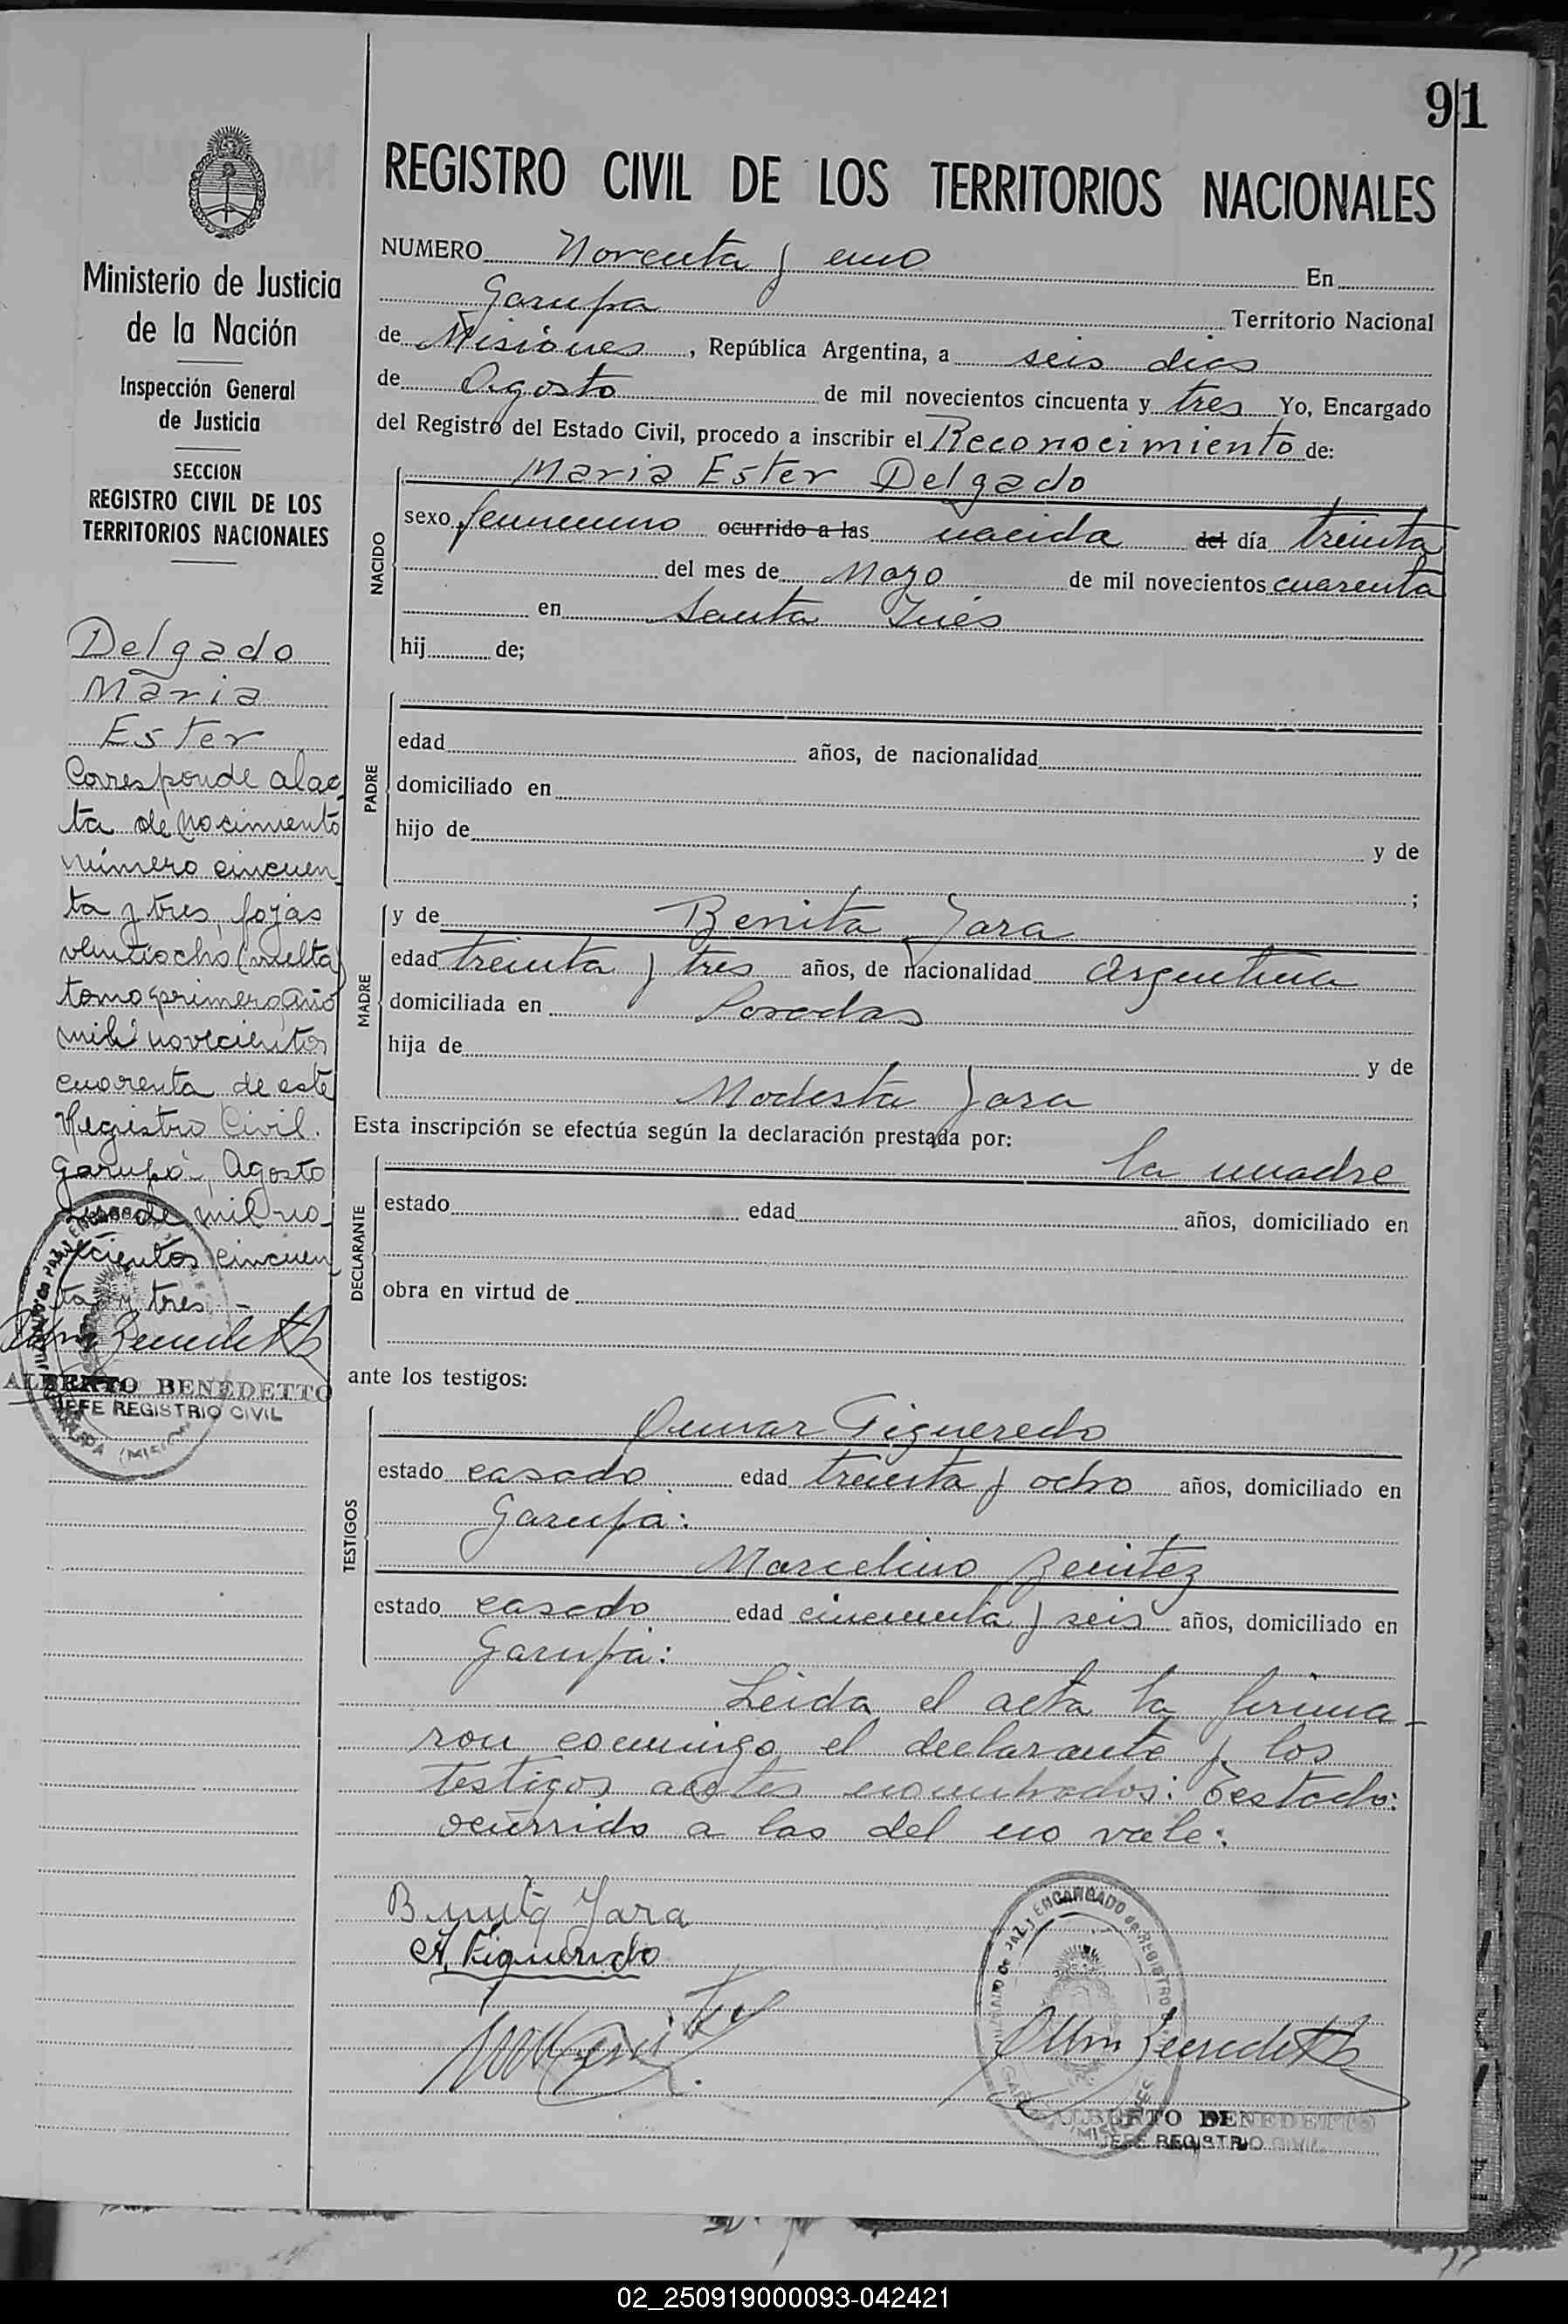 91
REGISTRO CIVIL DE LOS TERRITORIOS NACIONALES
Ministerio de Justicia
de la Nación
Inspección General
de Justicia
SECCION
REGISTRO CIVIL DE LOS
TERRITORIOS NACIONALES
Delgado
Maria
Ester
Corresponde al ac-
ta de nacimiento
número cincuen-
ta y tres, fojas
veintiocho (vuelta)
tomo primero año
mil novecientos
cuarenta de este
Registro Civil.
Garupá, Agosto
de mil no-
vecientos cincuen
ta y tres
ALBERTO BENEDETTO
JEFE REGISTRIO CIVIL
NUMERO Noventa y uno En
Garupa Territorio Nacional
de Misiones, República Argentina, a seis dias
de Agosto de mil novecientos cincuenta y tres Yo, Encargado
del Registro del Estado Civil, procedo a inscribir el Reconocimiento de:
NACIDO
Maria Ester Delgado
sexo femenino ocurrido a las nacida del día treinta
del mes de Mayo de mil novecientos cuarenta
en Santa Inés
hij de;
PADRE
edad años, de nacionalidad
domiciliado en
hijo de y de
;
MADRE
y de Benita Jara
edad treinta y tres años, de nacionalidad Argentina
domiciliada en Posadas
hija de y de
Modesta Jara
Esta inscripción se efectúa según la declaración prestada por:
DECLARANTE
la madre
estado edad años, domiciliado en
obra en virtud de
ante los testigos:
TESTIGOS
Figueredo
estado casado edad treinta y ocho años, domiciliado en
Garupa:
Marcelino Benitez
estado casado edad cincuenta y seis años, domiciliado en
Garupa:
Leida el acta la firma-
ron conmigo el declarante y los
testigos antes nombrados: Testado:
ocurrido a las del no vale:
Benita Jara
A. Figueredo
ALBERTO BENEDETTO
JEFE REGISTRIO CIVIL
02_250919000093-042421